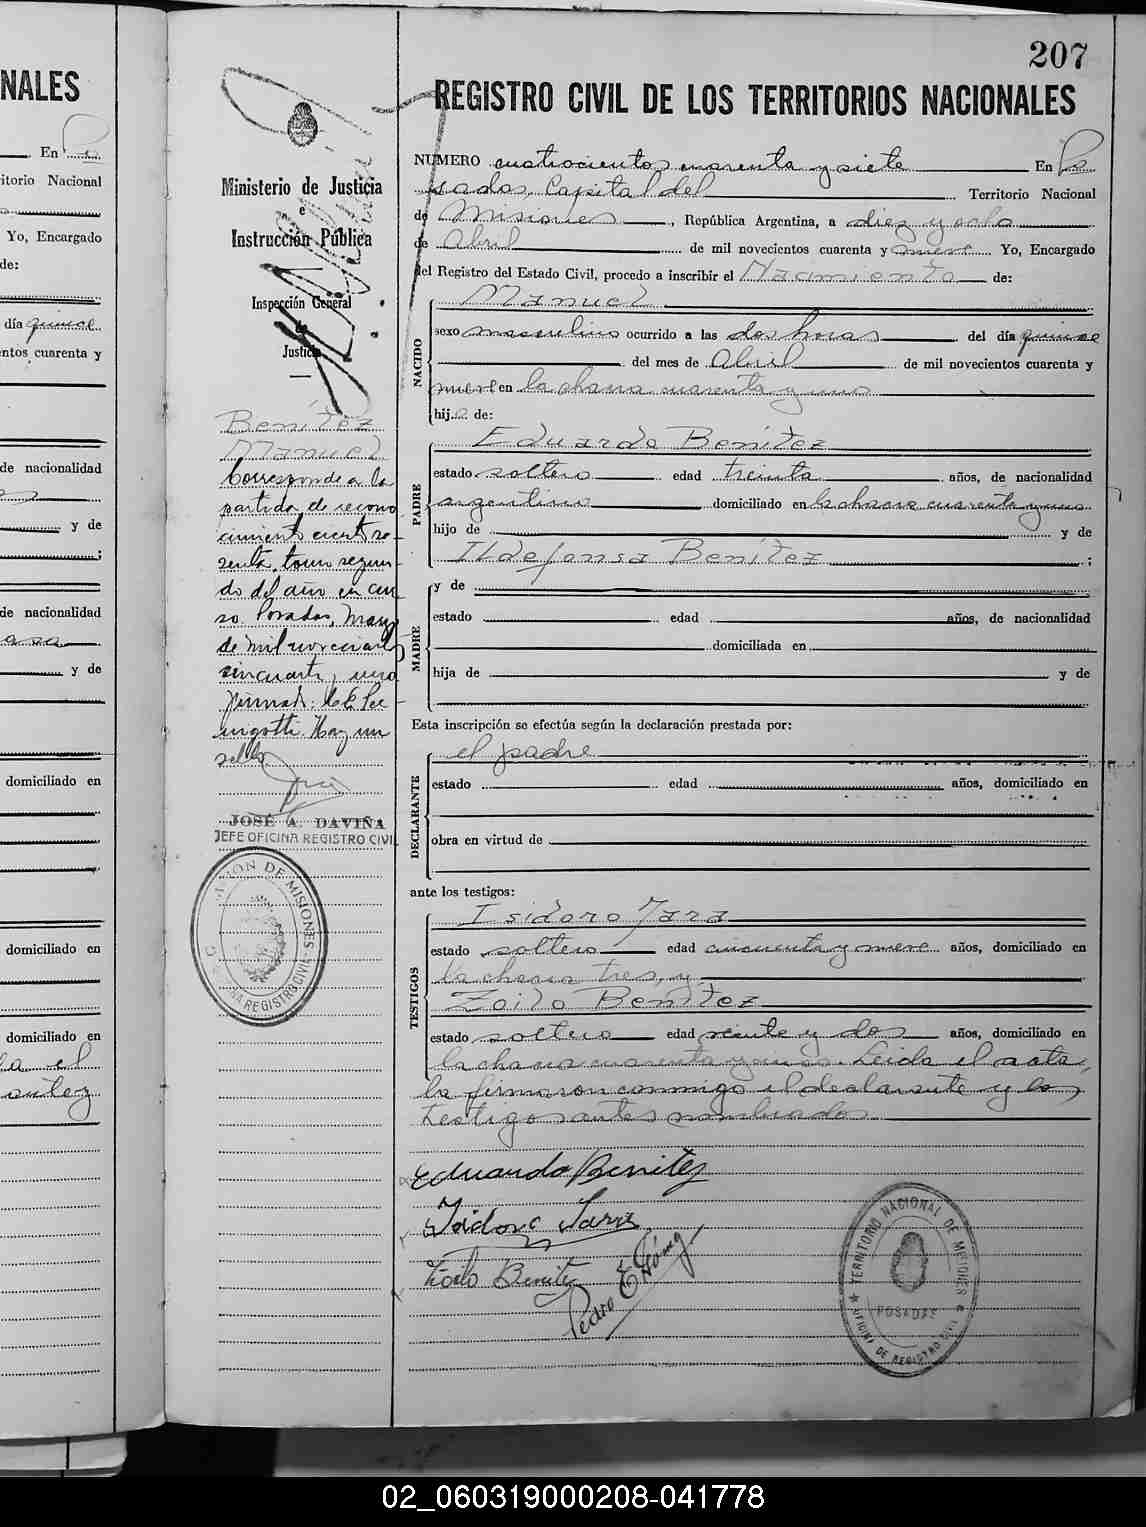 207
NALES
REGISTRO CIVIL DE LOS TERRITORIOS NACIONALES
En
itorio Nacional
Yo, Encargado
de:
día quince
entos cuarenta y
de nacionalidad
y de
;
de nacionalidad
y de
domiciliado en
domiciliado en
domiciliado en
Ministerio de Justicia
e
Instrucción Pública
Inspección General
de
Justicia
Benítez
Manuel
Corresponde a la
partida de recono
cimiento ciento se-
senta, tomo segun-
do del año en cur
so. Posadas, Mayo
de mil novecientos
cincuenta y uno
Firmado:
Hay un
sello
JOSÉ A. DAVIÑA
JEFE OFICINA REGISTRO CIVIL
DE MISIONES
REGISTRO CIVIL
NUMERO cuatrocientos cuarenta y siete En Po
sadas, Capital del Territorio Nacional
de Misiones, República Argentina, a diez y ocho
de Abril de mil novecientos cuarenta y nueve Yo, Encargado
del Registro del Estado Civil, procedo a inscribir el Nacimiento de:
NACIDO
Manuel
sexo masculino ocurrido a las dos horas del día quince
del mes de Abril de mil novecientos cuarenta y
nueve en la chacra cuarenta y uno
hijo de:
PADRE
Eduardo Benítez
estado soltero edad treinta años, de nacionalidad
argentino domiciliado en la chacra cuarenta y uno
hijo de y de
Ildefonsa Benítez ;
MADRE
y de
estado edad años, de nacionalidad
domiciliada en
hija de y de
Esta inscripción se efectúa según la declaración prestada por:
DECLARANTE
el padre
estado edad años, domiciliado en
obra en virtud de
ante los testigos:
TESTIGOS
Isidoro Jara
estado soltero edad cincuenta y nueve años, domiciliado en
la chacra tres, y
Zoilo Benítez
estado soltero edad veinte y dos años, domiciliado en
la chacra cuarenta y uno. Leida el acta,
la firmaron conmigo el declarante y los
testigos antes nombrados
Eduardo Benitez
Isidoro Jara
Zoilo Benitez
Pedro E.
TERRITORIO NACIONAL DE MISIONES
POSADAS
OFICINA DE REGISTRO CIVIL
02_060319000208-041778